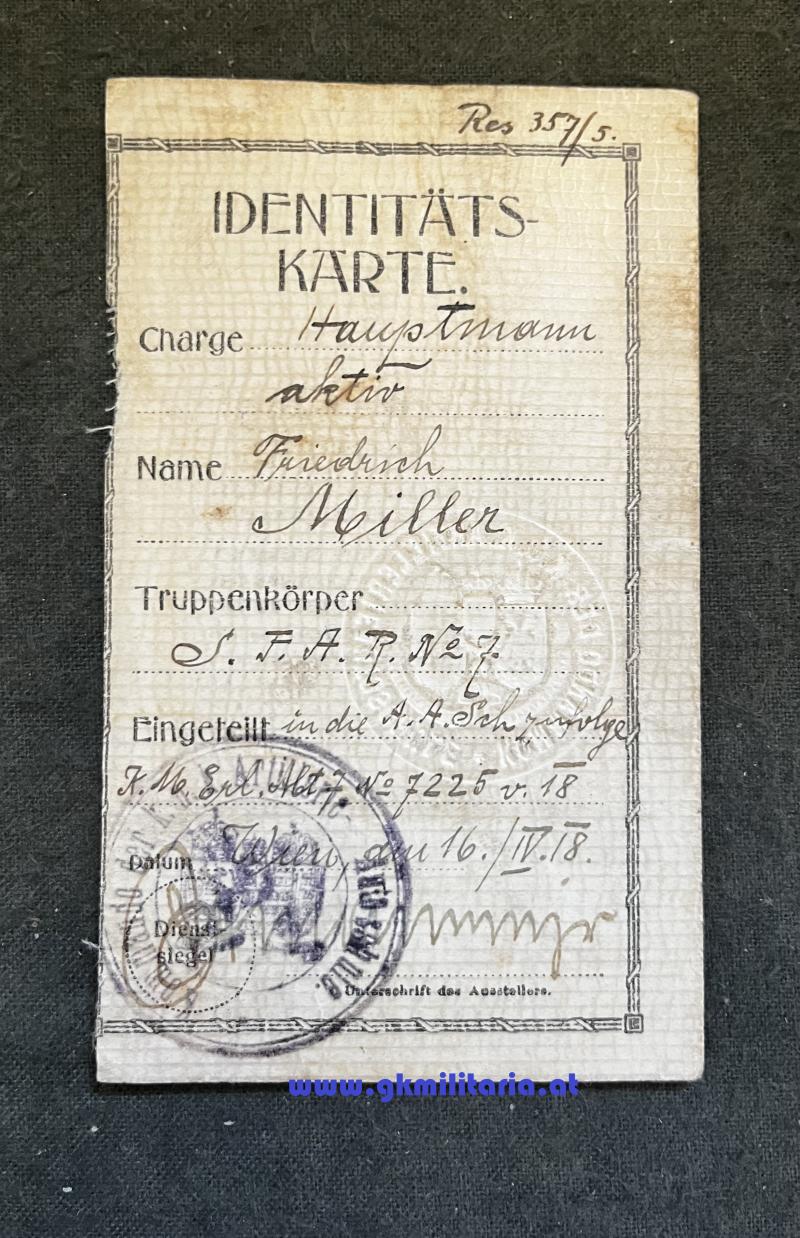 Res 357/5.
IDENTITÄTS-
KARTE.
Charge Hauptmann
aktiv
Name Friedrich
Miller
Truppenkörper
S. F. A. R. No 7.
Eingeteilt in die A. A. Sch zufolge
K. M. Erl. Abt. 7 No 7225 v. 18
Datum Wien, den 16./IV.18.
Dienst-
siegel
Unterschrift des Ausstellers.
Kommando der k. u. k. Militär-
www.gkmilitaria.at